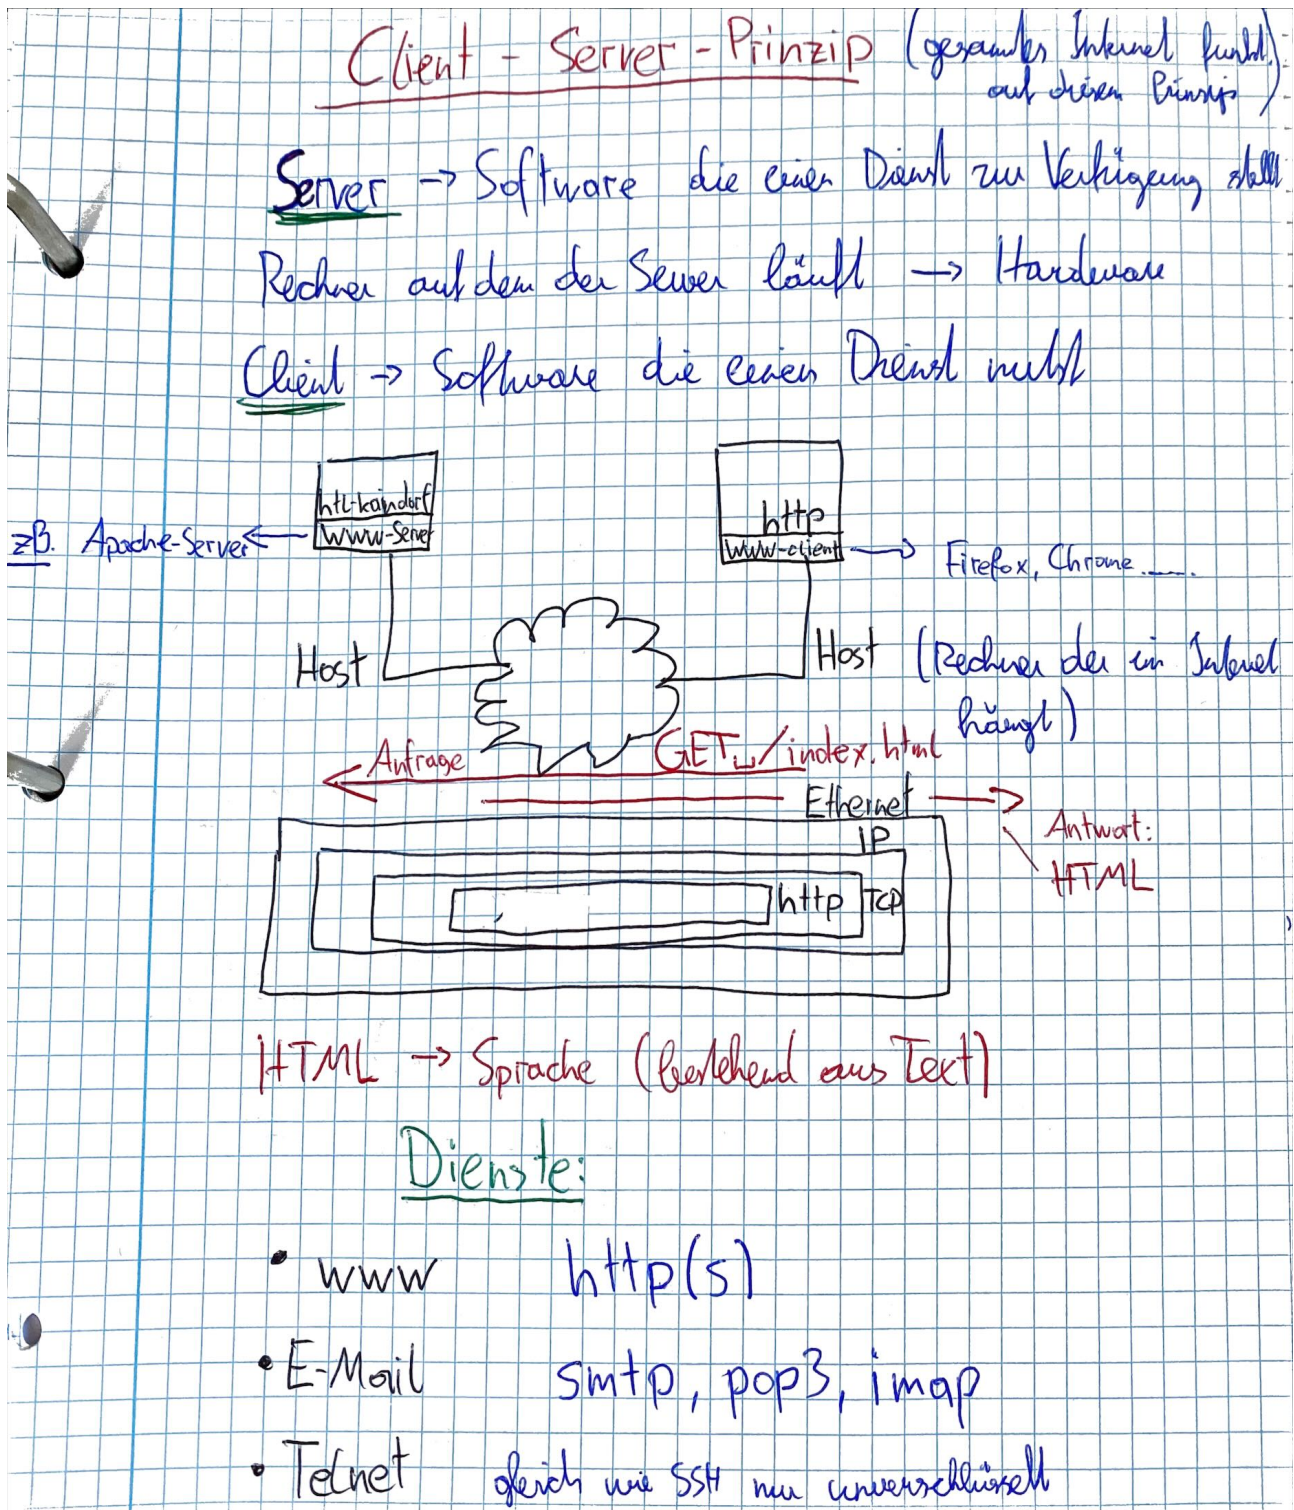 Client - Server - Prinzip (gesamtes Internet funkt.
auf diesem Prinzip)
Server → Software die einen Dienst zur Verfügung stellt
Rechner auf dem der Server läuft → Hardware
Client → Software die einen Dienst nutzt
htl-kaindorf
http
zB. Apache-Server ← www-Server
www-client → Firefox, Chrome......
Host
Host (Rechner der im Internet
hängt)
Anfrage
GET␣/index.html
Ethernet
Antwort:
HTML
IP
http TCP
HTML → Sprache (bestehend aus Text)
Dienste:
• www http(s)
• E-Mail smtp, pop3, imap
• Telnet gleich wie SSH nur unverschlüsselt